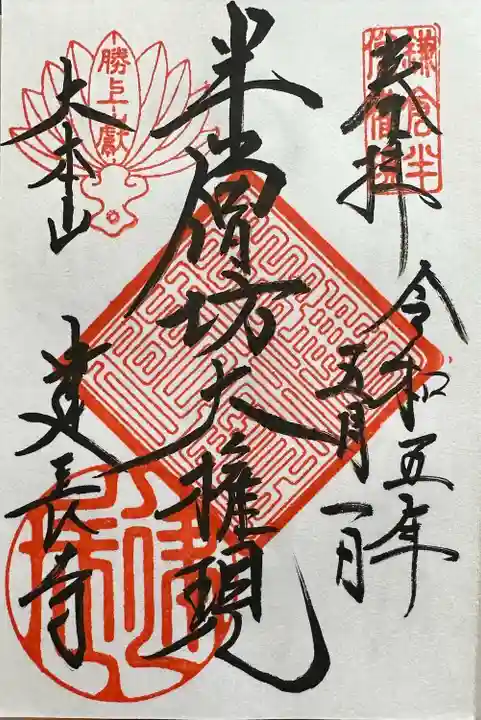 奉拝
令和五年
五月一日
鎌倉半
半僧坊大権現
勝上嶽
大本山
建長寺